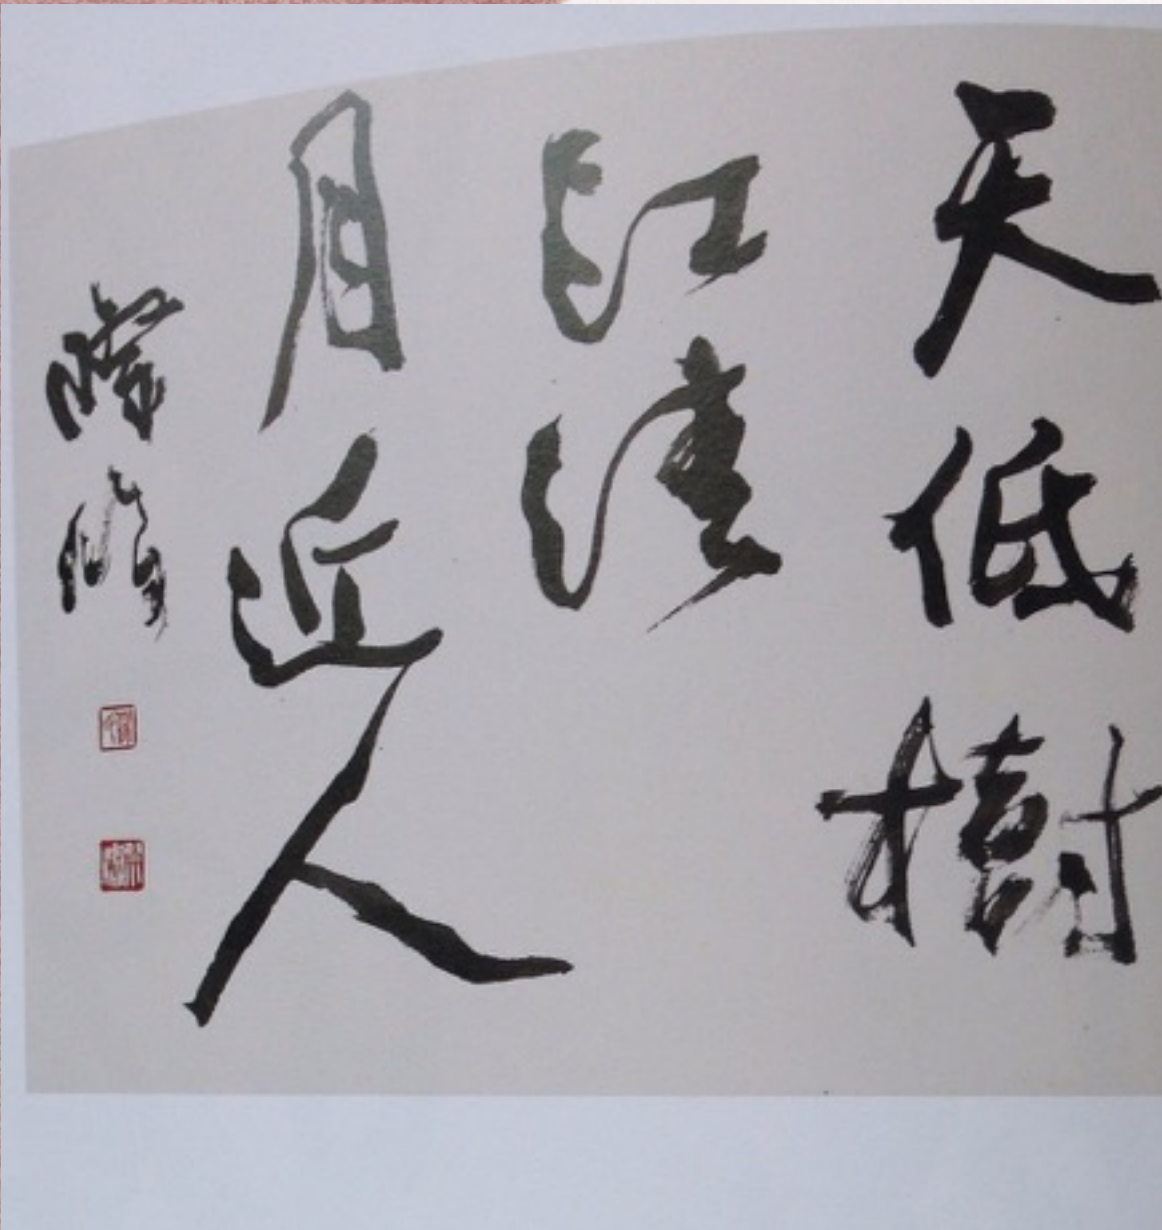 天低樹
江清
月近人